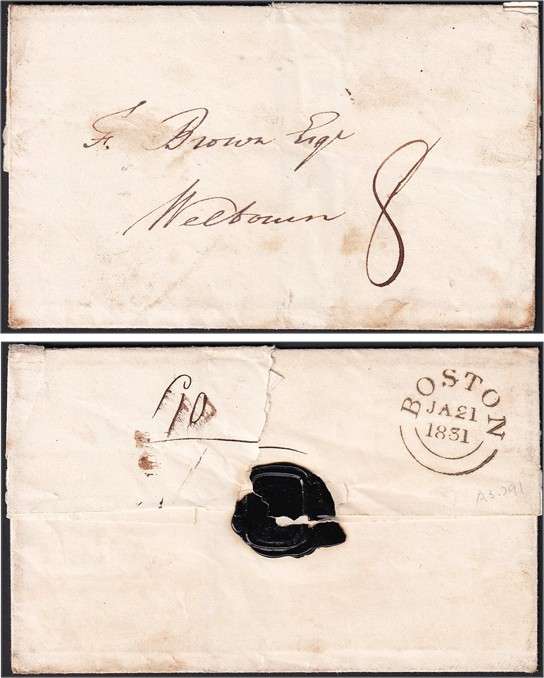 F. Brown Esqr
Welbourn
8
BOSTON
JA 21
1831